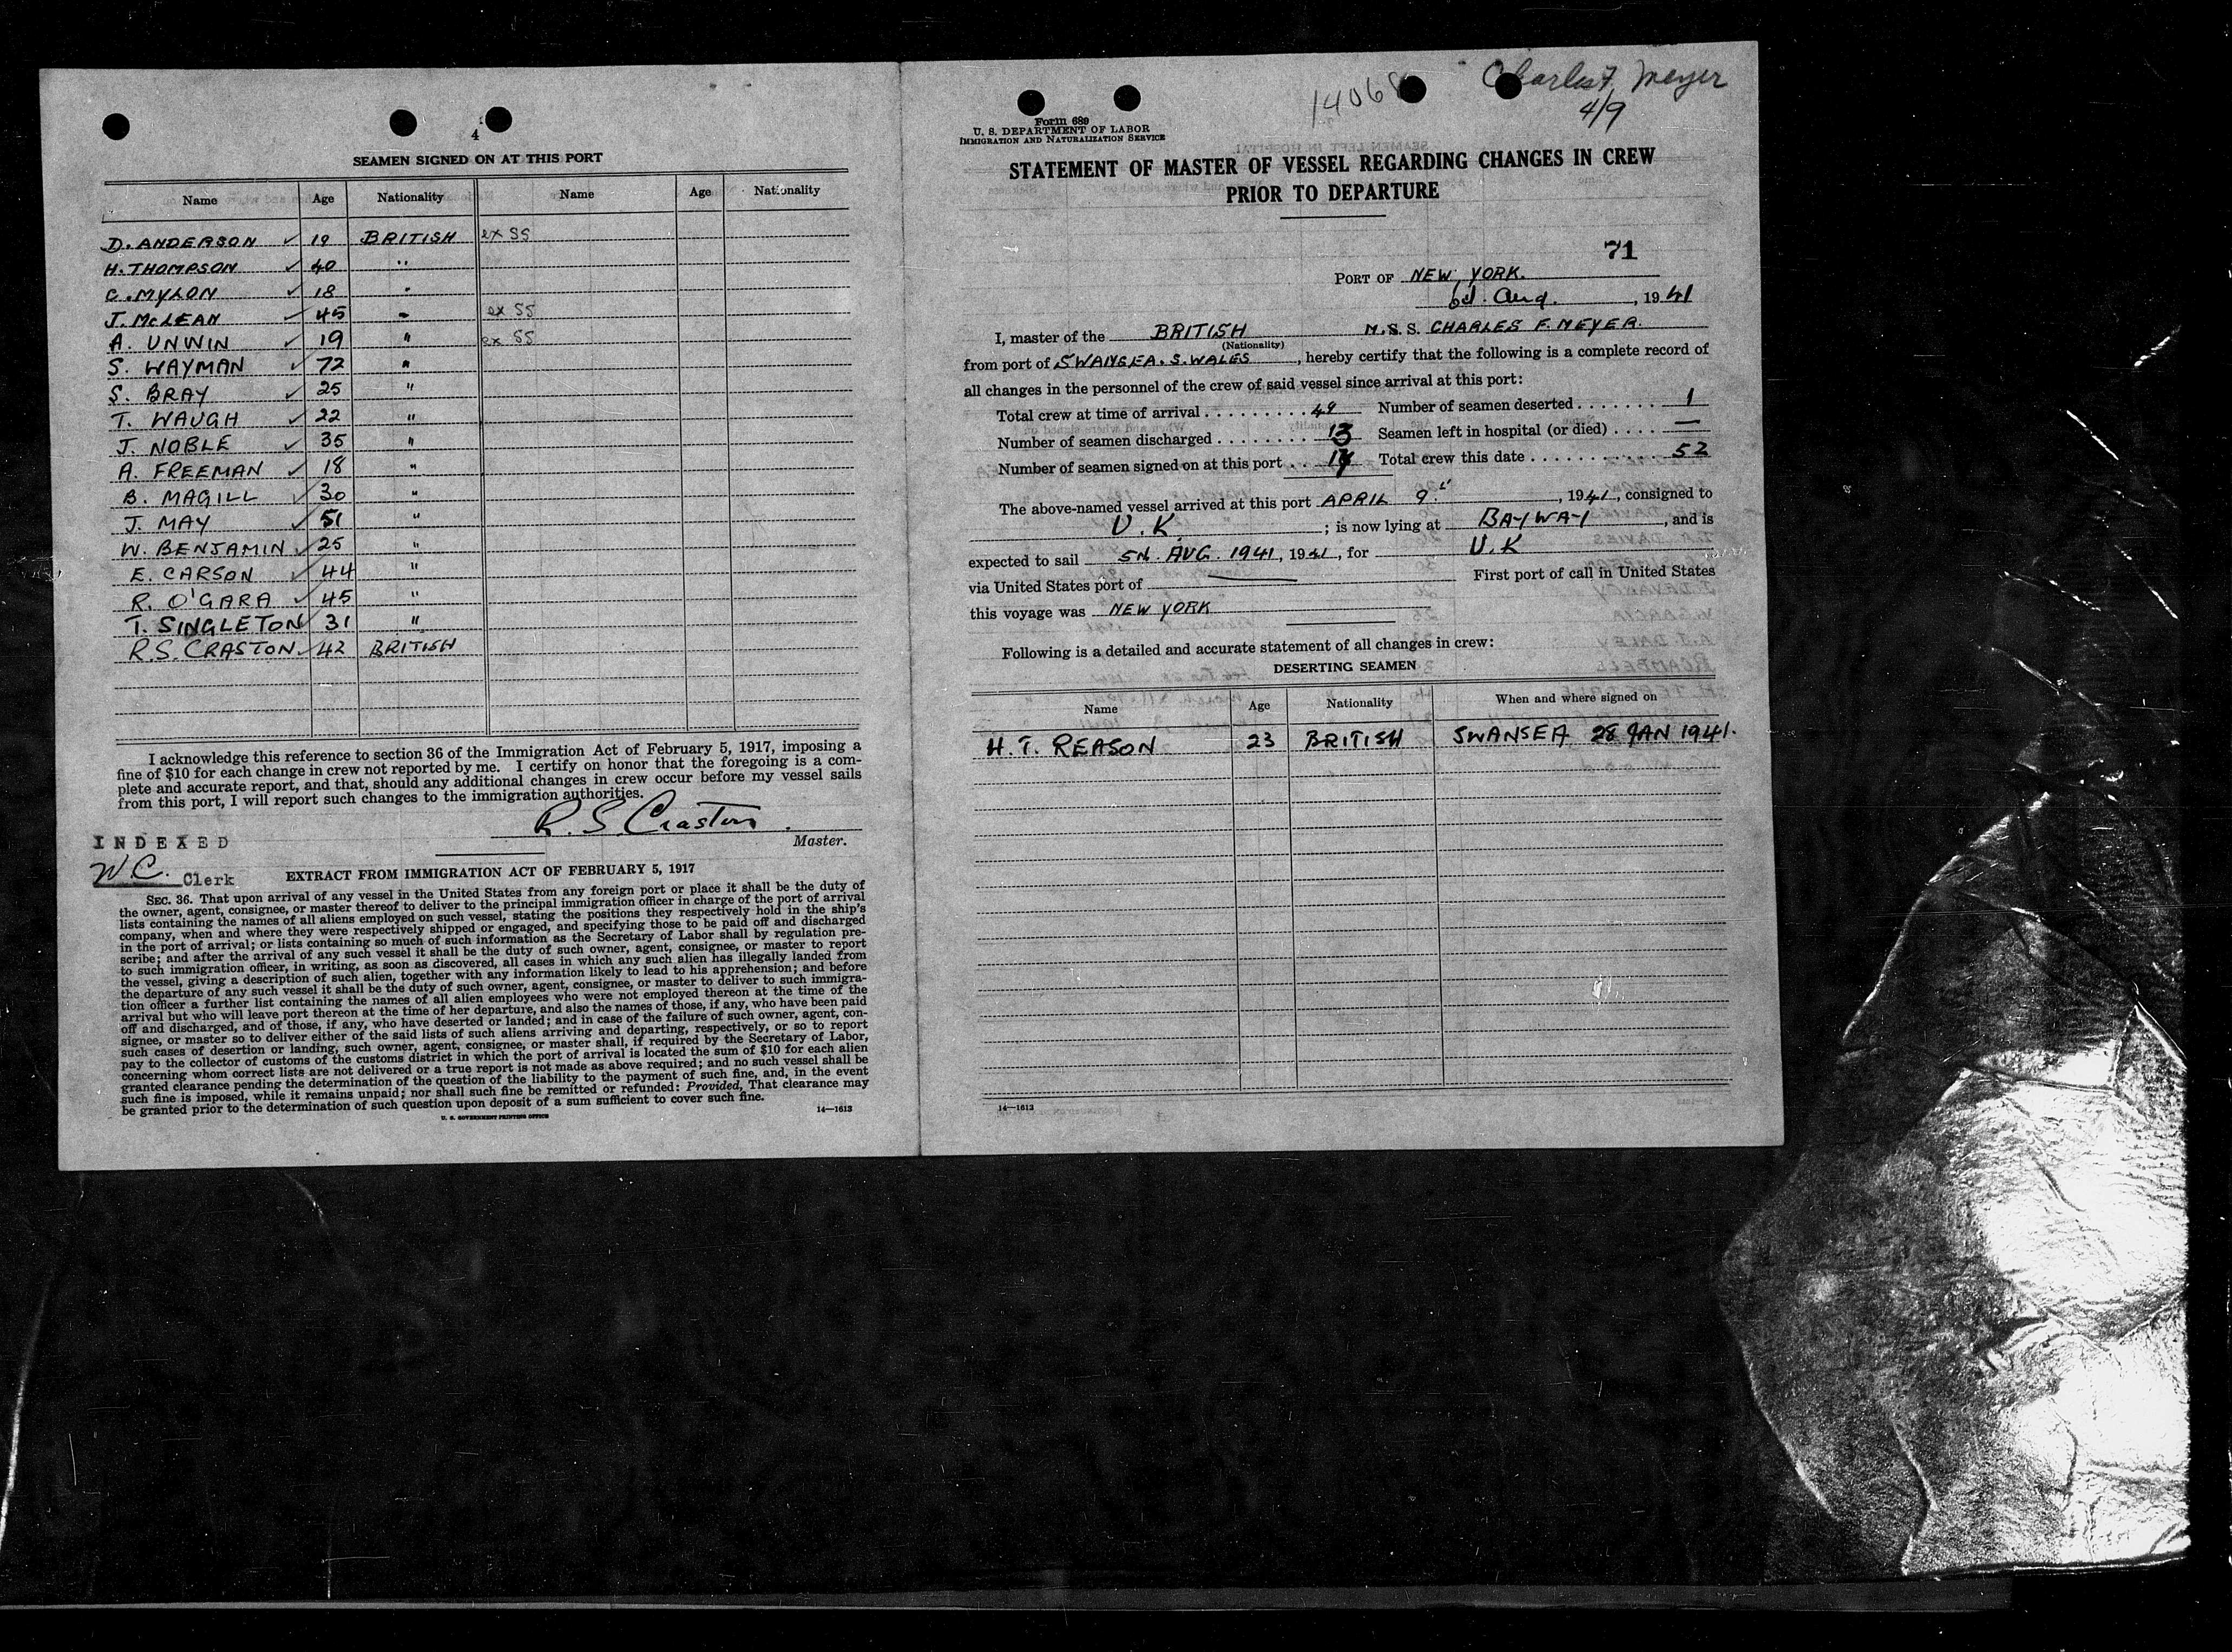 4
SEAMEN SIGNED ON AT THIS PORT
Name Age Nationality Name Age Nationality
D. ANDERSON ✓ 19 BRITISH ex SS
H. THOMPSON ✓ 40 "
C. MYLON ✓ 18 "
J. McLEAN ✓ 45 " ex SS
A. UNWIN ✓ 19 " ex SS
S. WAYMAN ✓ 72 "
S. BRAY ✓ 25 "
T. WAUGH ✓ 22 "
J. NOBLE ✓ 35 "
A. FREEMAN ✓ 18 "
B. MAGILL ✓ 30 "
J. MAY ✓ 51 "
W. BENJAMIN ✓ 25 "
E. CARSON ✓ 44 "
R. O'GARA ✓ 45 "
T. SINGLETON ✓ 31 "
R.S. CRASTON ✓ 42 BRITISH
I acknowledge this reference to section 36 of the Immigration Act of February 5, 1917, imposing a
fine of $10 for each change in crew not reported by me. I certify on honor that the foregoing is a com-
plete and accurate report, and that, should any additional changes in crew occur before my vessel sails
from this port, I will report such changes to the immigration authorities.
R. S. Craston.
Master.
INDEXED
WC. Clerk
EXTRACT FROM IMMIGRATION ACT OF FEBRUARY 5, 1917
SEC. 36. That upon arrival of any vessel in the United States from any foreign port or place it shall be the duty of
the owner, agent, consignee, or master thereof to deliver to the principal immigration officer in charge of the port of arrival
lists containing the names of all aliens employed on such vessel, stating the positions they respectively hold in the ship's
company, when and where they were respectively shipped or engaged, and specifying those to be paid off and discharged
in the port of arrival; or lists containing so much of such information as the Secretary of Labor shall by regulation pre-
scribe; and after the arrival of any such vessel it shall be the duty of such owner, agent, consignee, or master to report
to such immigration officer, in writing, as soon as discovered, all cases in which any such alien has illegally landed from
the vessel, giving a description of such alien, together with any information likely to lead to his apprehension; and before
the departure of any such vessel it shall be the duty of such owner, agent, consignee, or master to deliver to such immigra-
tion officer a further list containing the names of all alien employees who were not employed thereon at the time of the
arrival but who will leave port thereon at the time of her departure, and also the names of those, if any, who have been paid
off and discharged, and of those, if any, who have deserted or landed; and in case of the failure of such owner, agent, con-
signee, or master so to deliver either of the said lists of such aliens arriving and departing, respectively, or so to report
such cases of desertion or landing, such owner, agent, consignee, or master shall, if required by the Secretary of Labor,
pay to the collector of customs of the customs district in which the port of arrival is located the sum of $10 for each alien
concerning whom correct lists are not delivered or a true report is not made as above required; and no such vessel shall be
granted clearance pending the determination of the question of the liability to the payment of such fine, and, in the event
such fine is imposed, while it remains unpaid; nor shall such fine be remitted or refunded: Provided, That clearance may
be granted prior to the determination of such question upon deposit of a sum sufficient to cover such fine.
U. S. GOVERNMENT PRINTING OFFICE 14—1613
Charles F. Meyer
4/9
14068
Form 689
U. S. DEPARTMENT OF LABOR
IMMIGRATION AND NATURALIZATION SERVICE
STATEMENT OF MASTER OF VESSEL REGARDING CHANGES IN CREW
PRIOR TO DEPARTURE
71
PORT OF NEW YORK.
Aug. , 1941
I, master of the BRITISH M.S.S. CHARLES F. MEYER.
(Nationality)
from port of SWANSEA. S. WALES , hereby certify that the following is a complete record of
all changes in the personnel of the crew of said vessel since arrival at this port:
Total crew at time of arrival . . . . . . . . . 49 Number of seamen deserted . . . . . . . 1
Number of seamen discharged . . . . . . . . 13 Seamen left in hospital (or died) . . . . —
Number of seamen signed on at this port . . 17 Total crew this date . . . . . . . . . . . . 52
The above-named vessel arrived at this port APRIL 9 , 1941, consigned to
U.K. ; is now lying at BAYWAY , and is
expected to sail AUG. 1941 , 1941 , for U.K
via United States port of — First port of call in United States
this voyage was NEW YORK
Following is a detailed and accurate statement of all changes in crew:
DESERTING SEAMEN
Name Age Nationality When and where signed on
H. T. REASON 23 BRITISH SWANSEA 28 JAN 1941.
14—1613